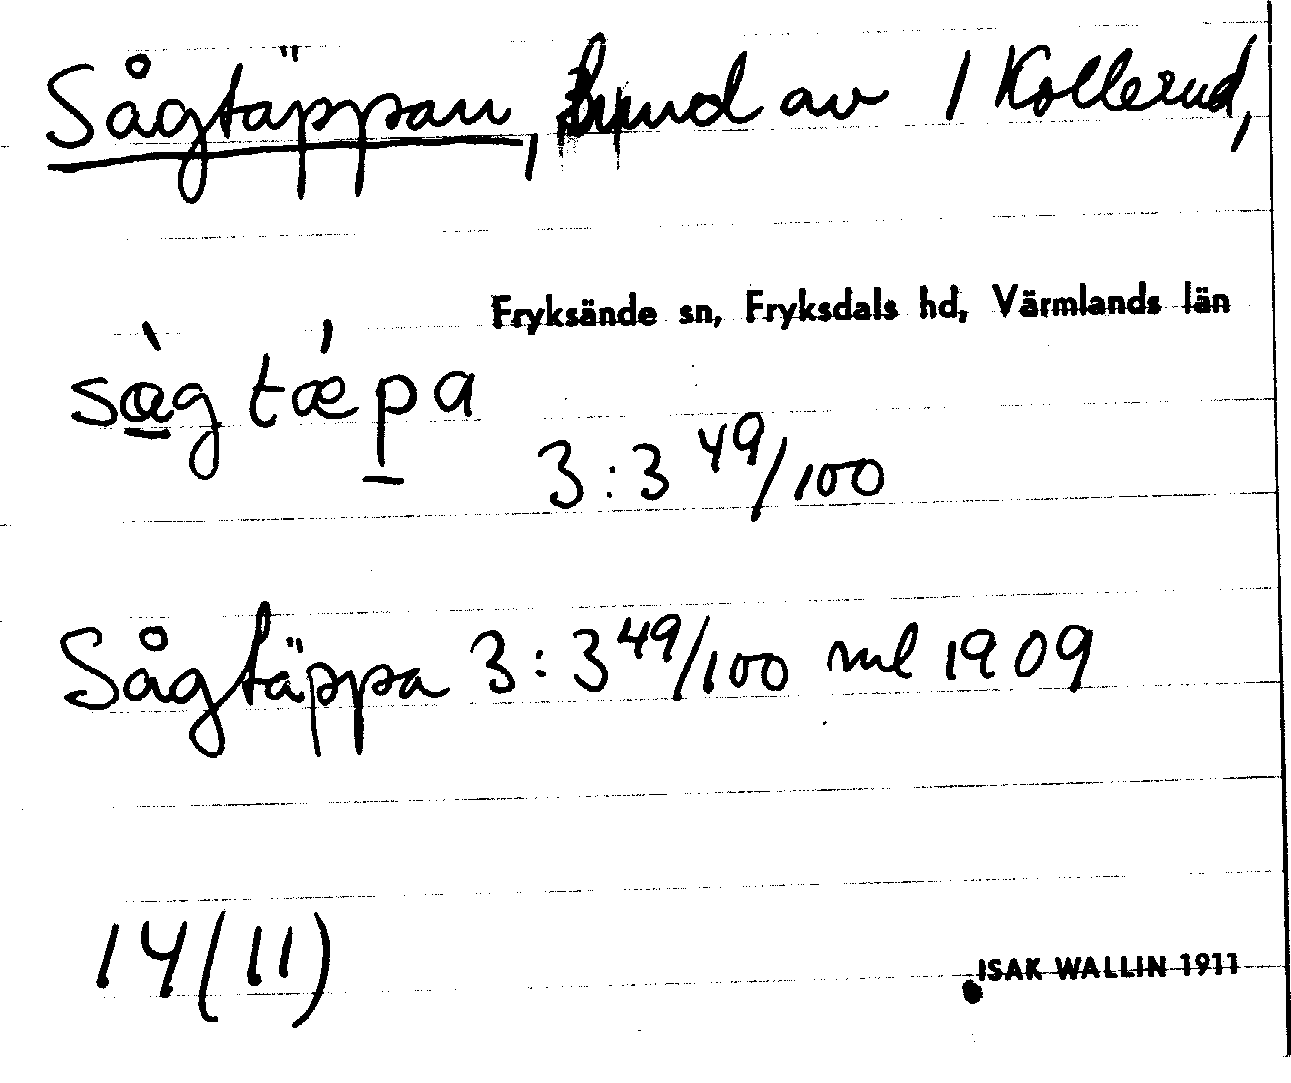 Sågtäppan, av 1 Kollerud,
Fryksände sn, Fryksdals hd, Värmlands län
sàg tǽpa
3:3 49/100
Sågtäppa 3:3 49/100 ml 1909
14(11)
ISAK WALLIN 1911